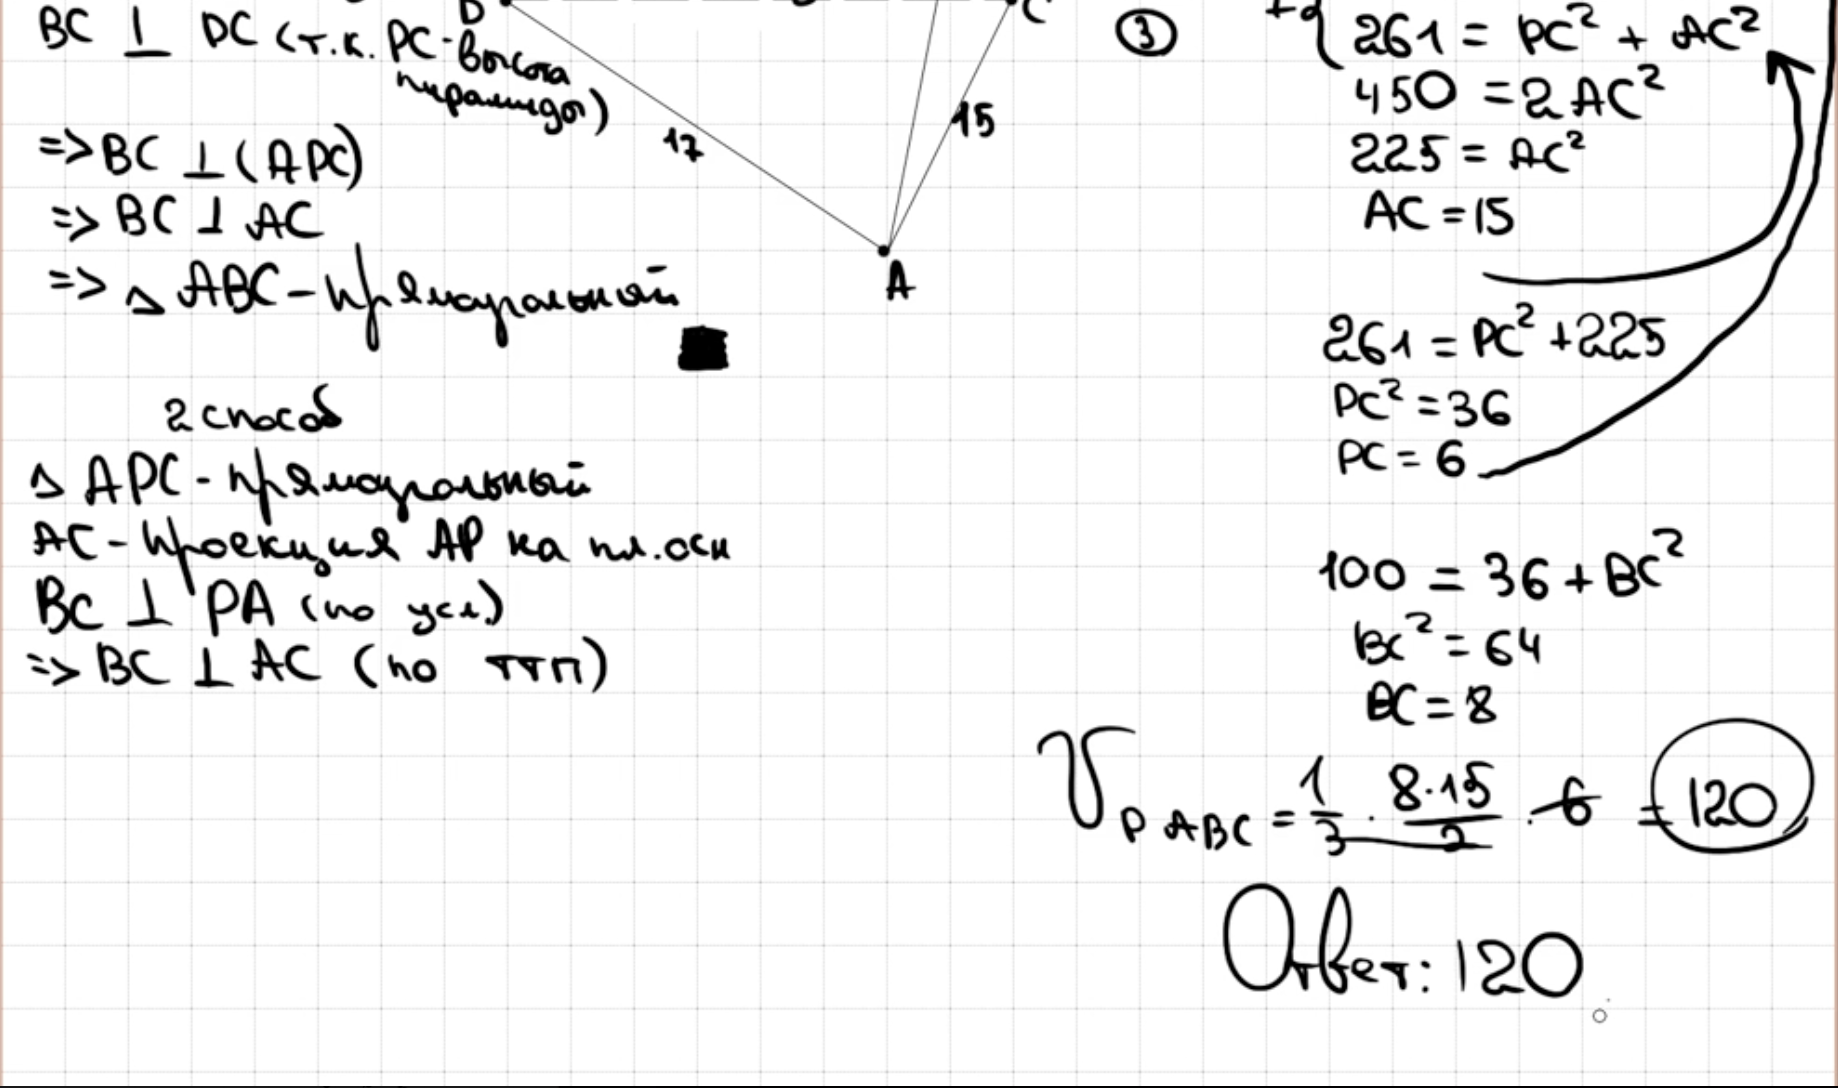 BC ⊥ PC (т.к. PC-высота
пирамиды)
=> BC ⊥ (APC)
=> BC ⊥ AC
=> △ ABC - прямоугольный
2 способ
△ APC - прямоугольный
AC - проекция AP на пл. осн
BC ⊥ PA (по усл.)
=> BC ⊥ AC (по ТТП)
B
C
17
15
A
③
261 = PC² + AC²
450 = 2AC²
225 = AC²
AC = 15
261 = PC² + 225
PC² = 36
PC = 6
100 = 36 + BC²
BC² = 64
BC = 8
V PABC = 1/3 · 8·15/2 · 6 = 120
Ответ: 120